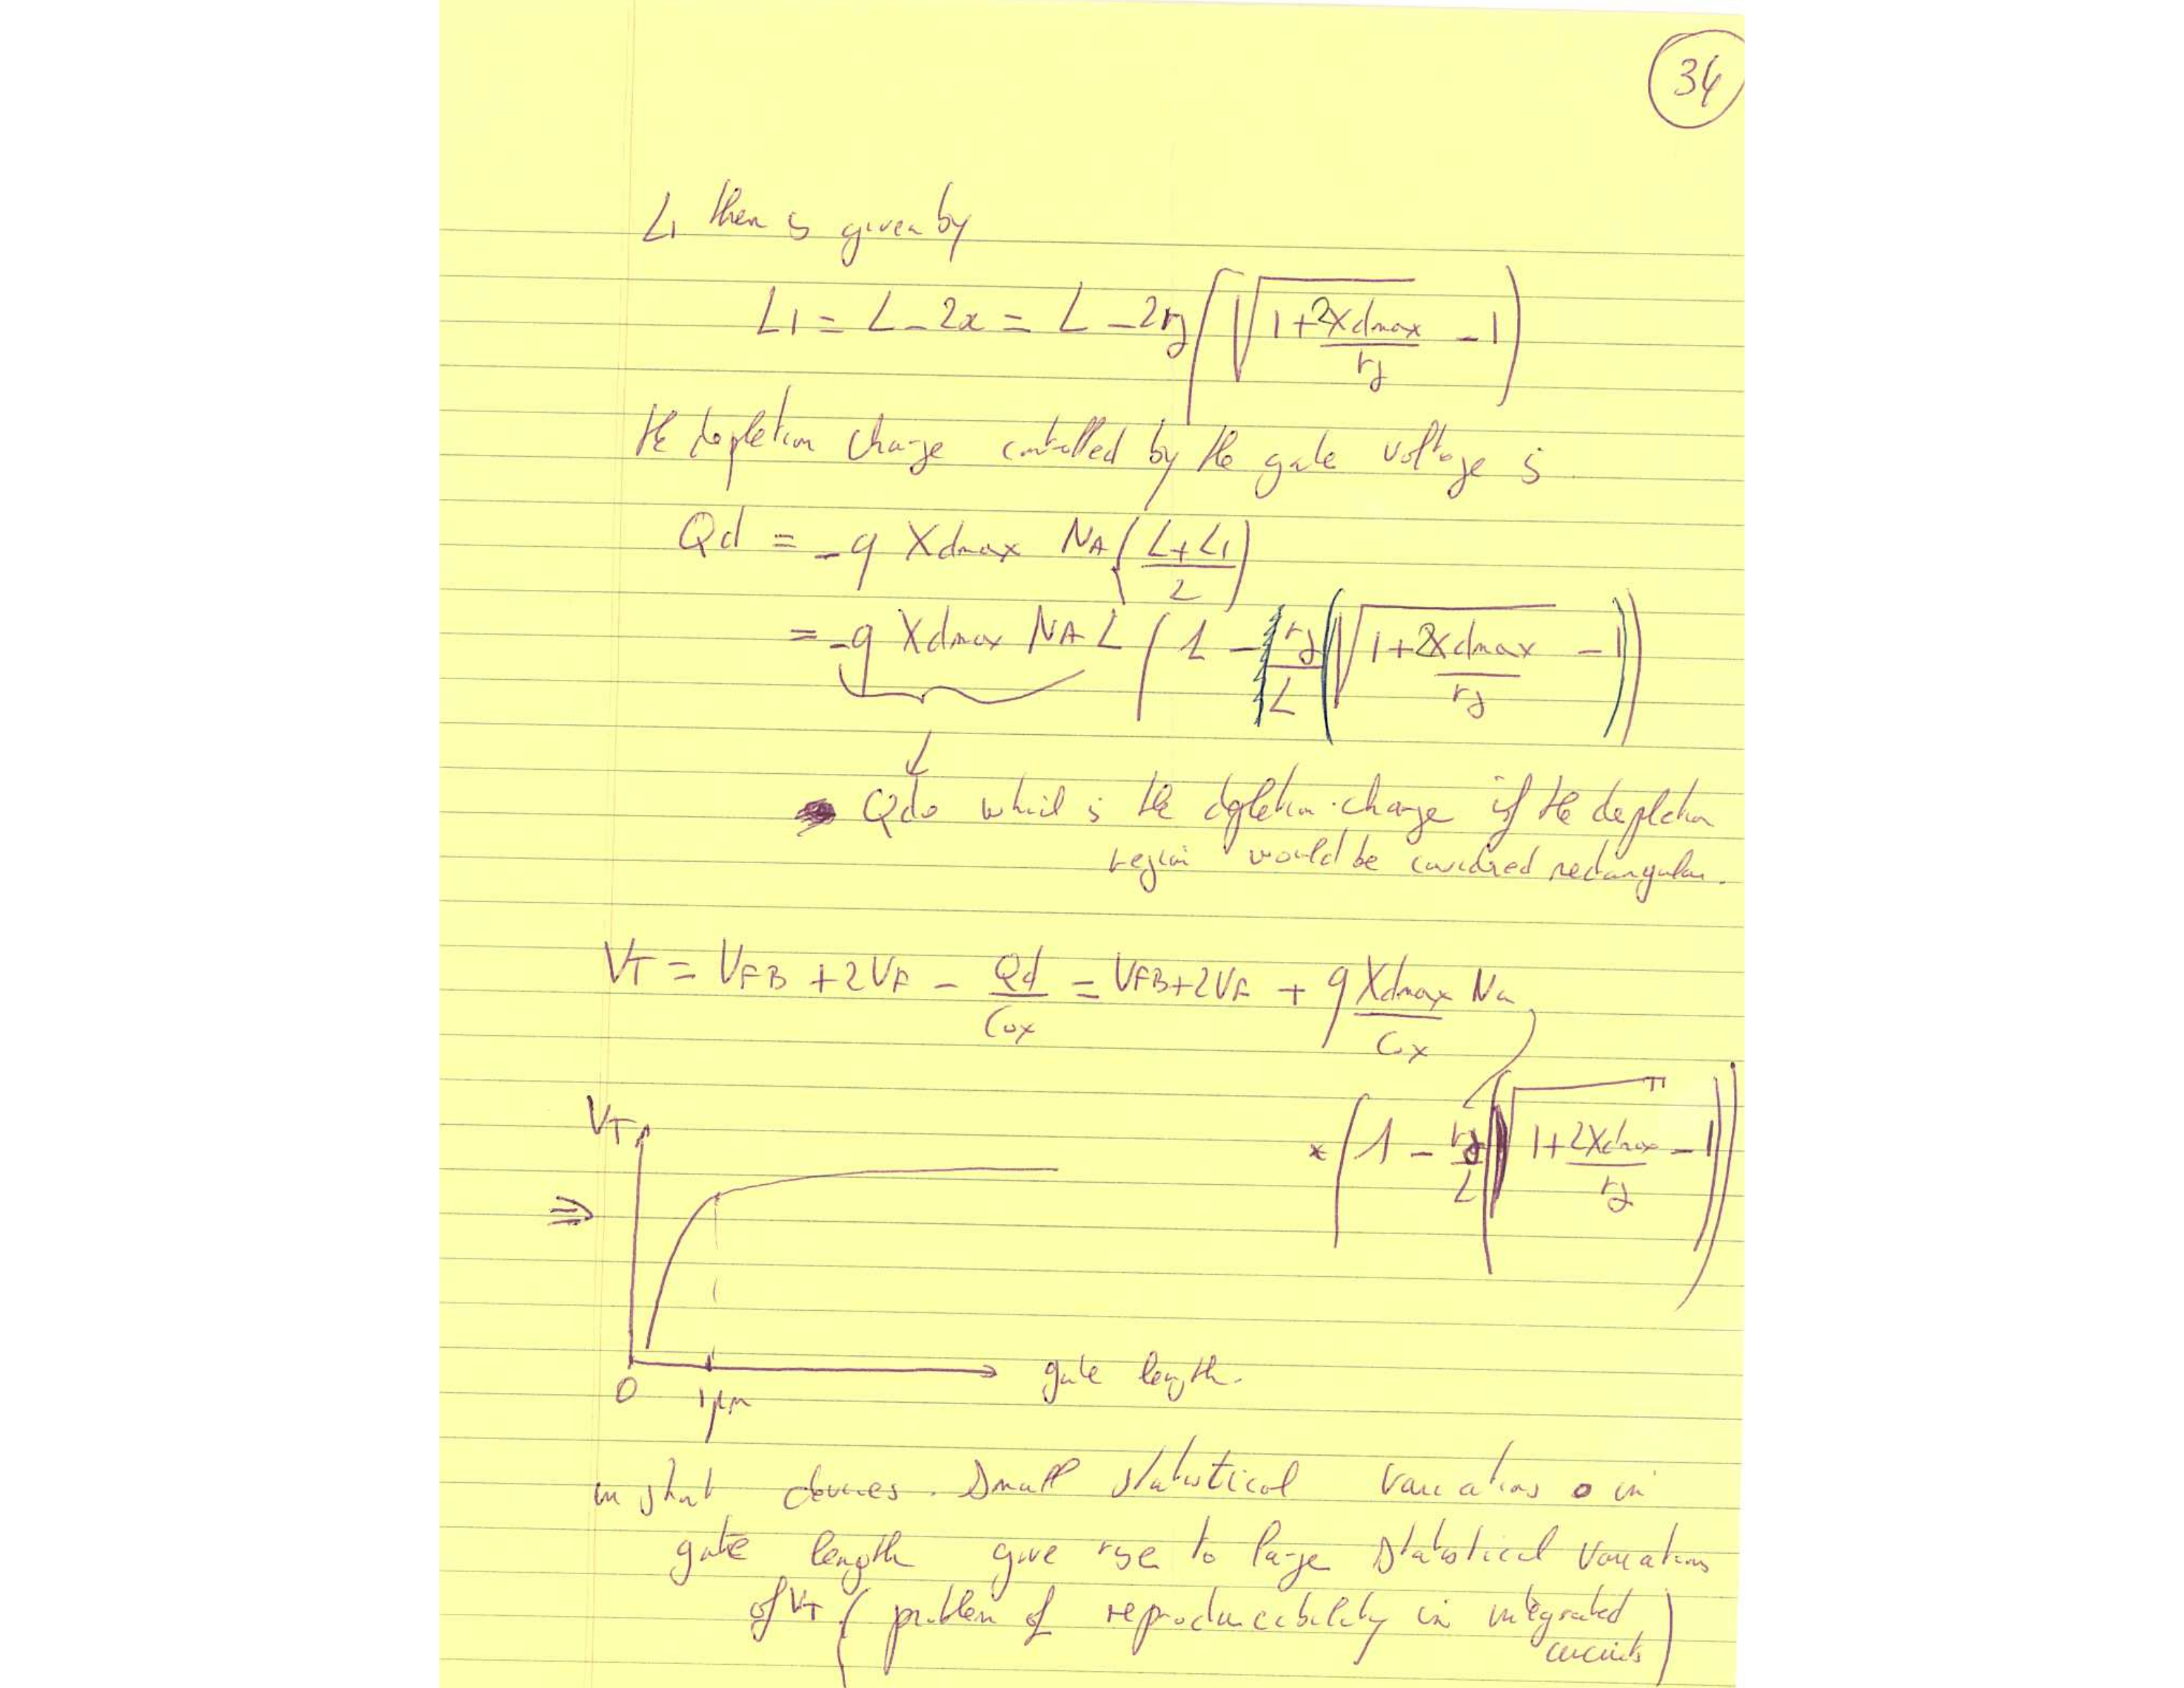 34
L1 then is given by
L1 = L - 2x = L - 2rj ( √(1 + 2Xdmax / rj) - 1 )
the depletion charge controlled by the gate voltage is
Qd = -q Xdmax NA ( (L + L1) / 2 )
= -q Xdmax NA L ( 1 - rj / L ( √(1 + 2Xdmax / rj) - 1 ) )
↓
Qdo which is the depletion charge if the depletion
region would be considred rectangular.
VT = VFB + 2VF - Qd / Cox = VFB + 2VF + q Xdmax Na / Cox
* ( 1 - rj / L ( √(1 + 2Xdmax / rj) - 1 ) )
VT
⇒
gate length.
0 1µm
in short devices. Small statistical variations in
gate length give rise to large statistical variations
of VT ( problem of reproduceability in integrated
circuits )